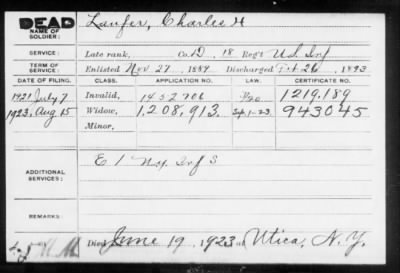 DEAD
NAME OF SOLDIER: Laufer, Charlie H
SERVICE: Late rank, Co. D, 18 Reg't U.S. Inf
TERM OF SERVICE: Enlisted Nov 27, 1889 Discharged Feb 26, 1893
DATE OF FILING. CLASS. APPLICATION NO. CERTIFICATE NO.
1921 July 7 Invalid, 1452706 1219,189
1923, Aug 15 Widow, 1.208,913. Sep 1-23 943045
Minor,
ADDITIONAL SERVICES: E 1 Inf
REMARKS:
Died June 19, 1923 at Utica, N.Y.